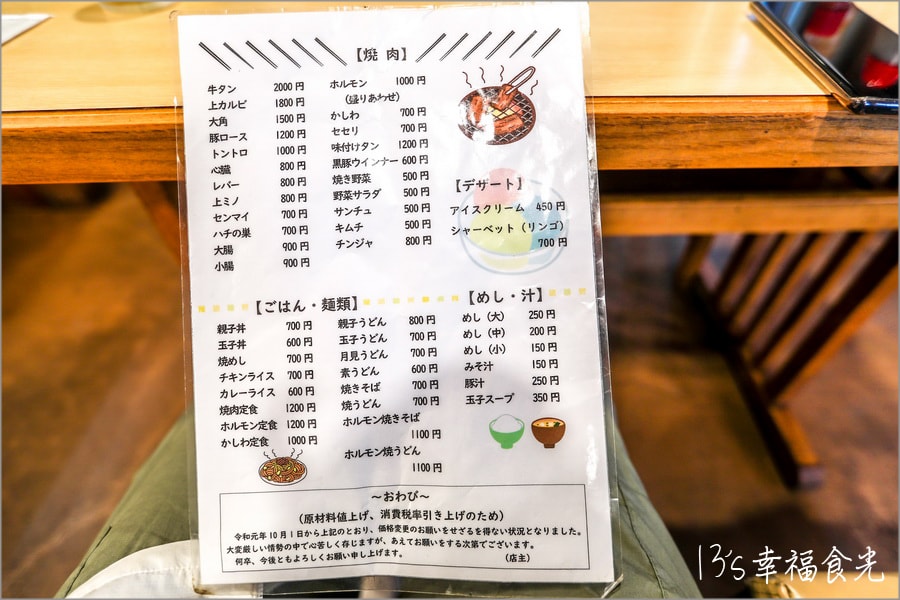 【焼 肉】
牛タン 2000 円
上カルビ 1800 円
大角 1500 円
豚ロース 1200 円
トントロ 1000 円
心臓 800 円
レバー 800 円
上ミノ 800 円
センマイ 700 円
ハチの巣 700 円
大腸 900 円
小腸 900 円
ホルモン 1000 円
（盛りあわせ）
かしわ 700 円
セセリ 700 円
味付けタン 1200 円
黒豚ウインナー 600 円
焼き野菜 500 円
野菜サラダ 500 円
サンチュ 500 円
キムチ 500 円
チンジャ 800 円
【デザート】
アイスクリーム 450 円
シャーベット（リンゴ）
700 円
【ごはん・麺類】
親子丼 700 円
玉子丼 600 円
焼めし 700 円
チキンライス 700 円
カレーライス 600 円
焼肉定食 1200 円
ホルモン定食 1200 円
かしわ定食 1000 円
親子うどん 800 円
玉子うどん 700 円
月見うどん 700 円
素うどん 600 円
焼きそば 700 円
焼うどん 700 円
ホルモン焼きそば
1100 円
ホルモン焼うどん
1100 円
【めし・汁】
めし（大） 250 円
めし（中） 200 円
めし（小） 150 円
みそ汁 150 円
豚汁 250 円
玉子スープ 350 円
～おわび～
（原材料値上げ、消費税率引き上げのため）
令和元年 10 月 1 日から上記のとおり、価格変更のお願いをせざるを得ない状況となりました。
大変厳しい情勢の中で心苦しく存じますが、あえてお願いをする次第でございます。
何卒、今後ともよろしくお願い申し上げます。 （店主）
13's幸福食光